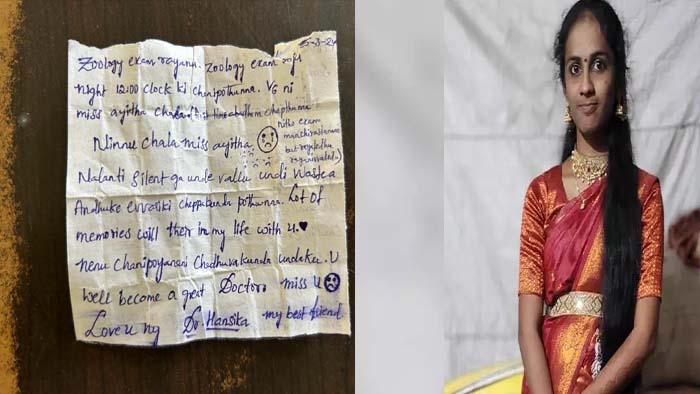 5-3-24
Zoology exam rayanu. Zoology exam roju
night 12:00 clock ki chanipothanna. VG ni
miss ayitha chala
Ninnu chala miss ayitha
nitho exam
manchirasiananu
but
Nalanti Silent ga unde vallu undi waste a
Andhuke evvariki cheppakunda pothunna. Lot of
memories will ther in my life with u.
nenu chanipoyanani Chadhuvakunda undaku. U
well become a great Doctor miss u
Love u ny Dr. Hansika my best friend